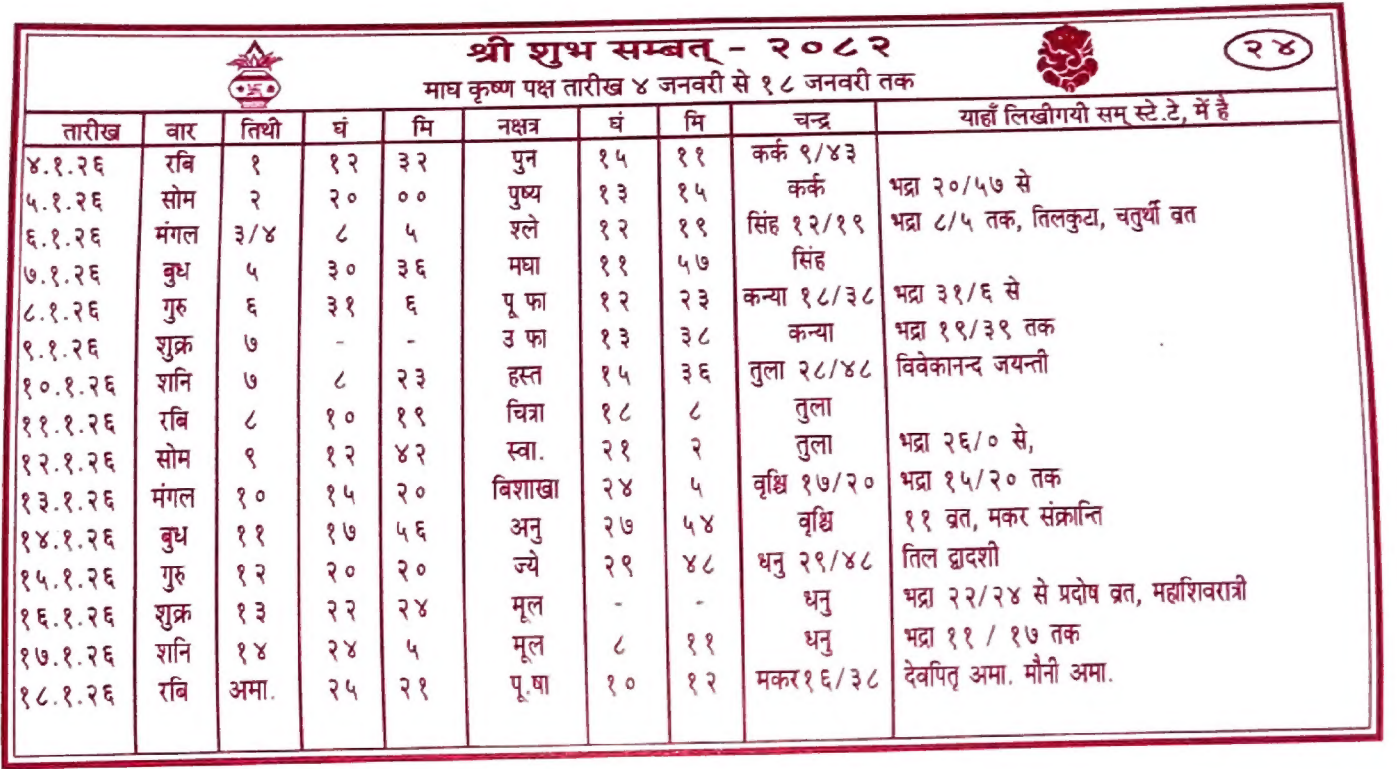 श्री शुभ सम्बत् - २०८२
२४
माघ कृष्ण पक्ष तारीख ४ जनवरी से १८ जनवरी तक
तारीख वार तिथी घं मि नक्षत्र घं मि चन्द्र याहाँ लिखीगयी सम् स्टे.टे, में है
४.१.२६ रबि १ १२ ३२ पुन १५ ११ कर्क ९/४३
५.१.२६ सोम २ २० ०० पुष्य १३ १५ कर्क भद्रा २०/५७ से
६.१.२६ मंगल ३/४ ८ ५ श्ले १२ १९ सिंह १२/१९ भद्रा ८/५ तक, तिलकुटा, चतुर्थी व्रत
७.१.२६ बुध ५ ३० ३६ मघा ११ ५७ सिंह
८.१.२६ गुरु ६ ३१ ६ पू फा १२ २३ कन्या १८/३८ भद्रा ३१/६ से
९.१.२६ शुक्र ७ - - उ फा १३ ३८ कन्या भद्रा १९/३९ तक
१०.१.२६ शनि ७ ८ २३ हस्त १५ ३६ तुला २८/४८ विवेकानन्द जयन्ती
११.१.२६ रबि ८ १० १९ चित्रा १८ ८ तुला
१२.१.२६ सोम ९ १२ ४२ स्वा. २१ २ तुला भद्रा २६/० से,
१३.१.२६ मंगल १० १५ २० बिशाखा २४ ५ वृश्चि १७/२० भद्रा १५/२० तक
१४.१.२६ बुध ११ १७ ५६ अनु २७ ५४ वृश्चि ११ व्रत, मकर संक्रान्ति
१५.१.२६ गुरु १२ २० २० ज्ये २९ ४८ धनु २९/४८ तिल द्वादशी
१६.१.२६ शुक्र १३ २२ २४ मूल - - धनु भद्रा २२/२४ से प्रदोष व्रत, महाशिवरात्री
१७.१.२६ शनि १४ २४ ५ मूल ८ ११ धनु भद्रा ११ / १७ तक
१८.१.२६ रबि अमा. २५ २१ पू.षा १० १२ मकर१६/३८ देवपितृ अमा. मौनी अमा.